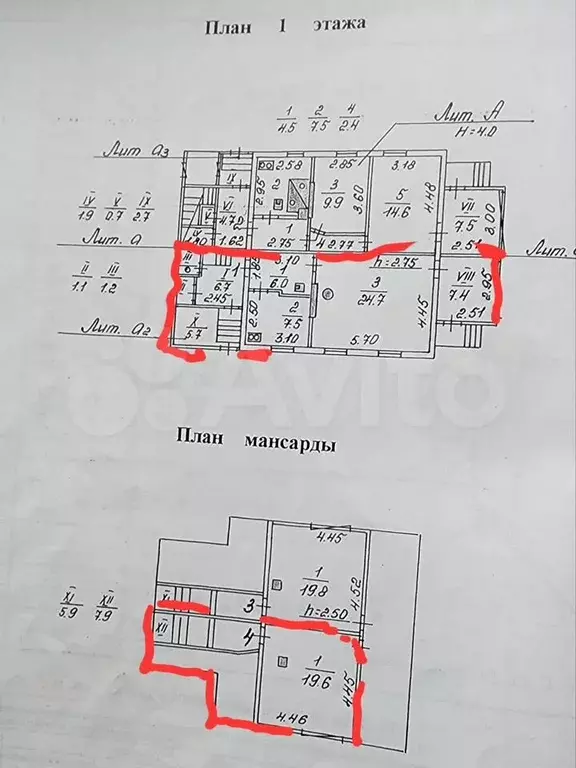 План 1 этажа
1/4.5 2/7.5 4/2.4
Лит. А
H=4.0
Лит аз
IX
2.58
2.85
3.18
IV/1.9 V/0.7 IX/2.7
VI
4.7
2
2.95
2
3/9.9
3.60
5/14.6
4.48
VII/7.5
3.00
1.62
1
2.75
4 2.77
2.51
Лит. а
III
I/6.7
1
1.82
3.10
1/6.0
h=2.75
II/1.1 III/1.2
2.45
3/24.7
VIII/7.4
2.95
X/5.7
2.50
2/7.5
4.45
2.51
Лит. аг
3.10
5.70
Avito
План мансарды
4.45
1/19.8
4.52
XI/5.9 XII/7.9
XI
3
h=2.50
XII
4
1/19.6
4.45
4.46